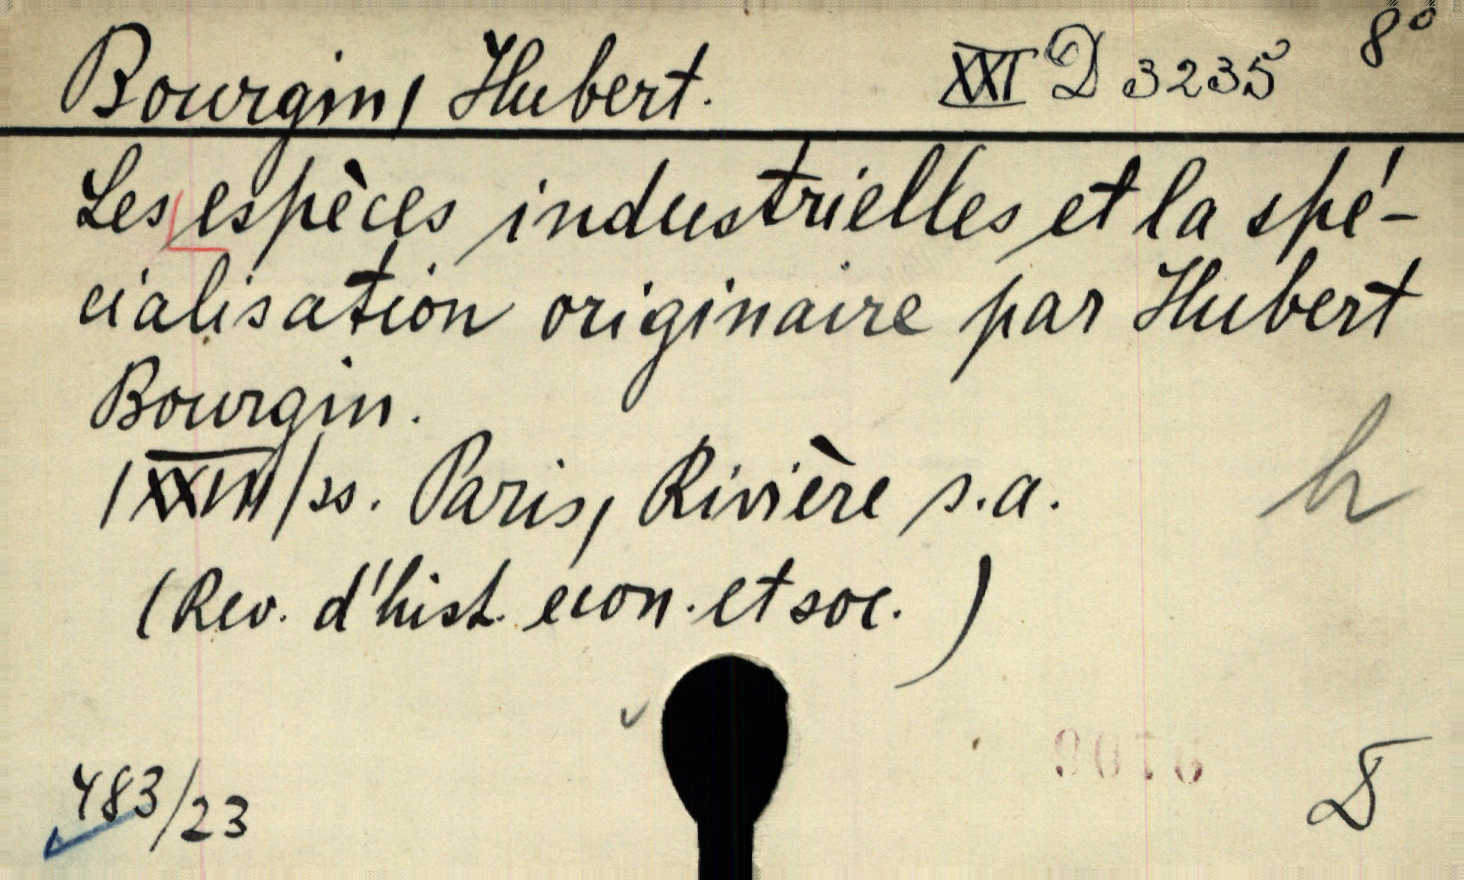 Bourgin, Hubert. XXI D 3235 8°
Les espèces industrielles et la spé-
cialisation originaire par Hubert
Bourgin.
Paris, Rivière s.a.
(Rev. d'hist. econ. et soc. )
h
483/23